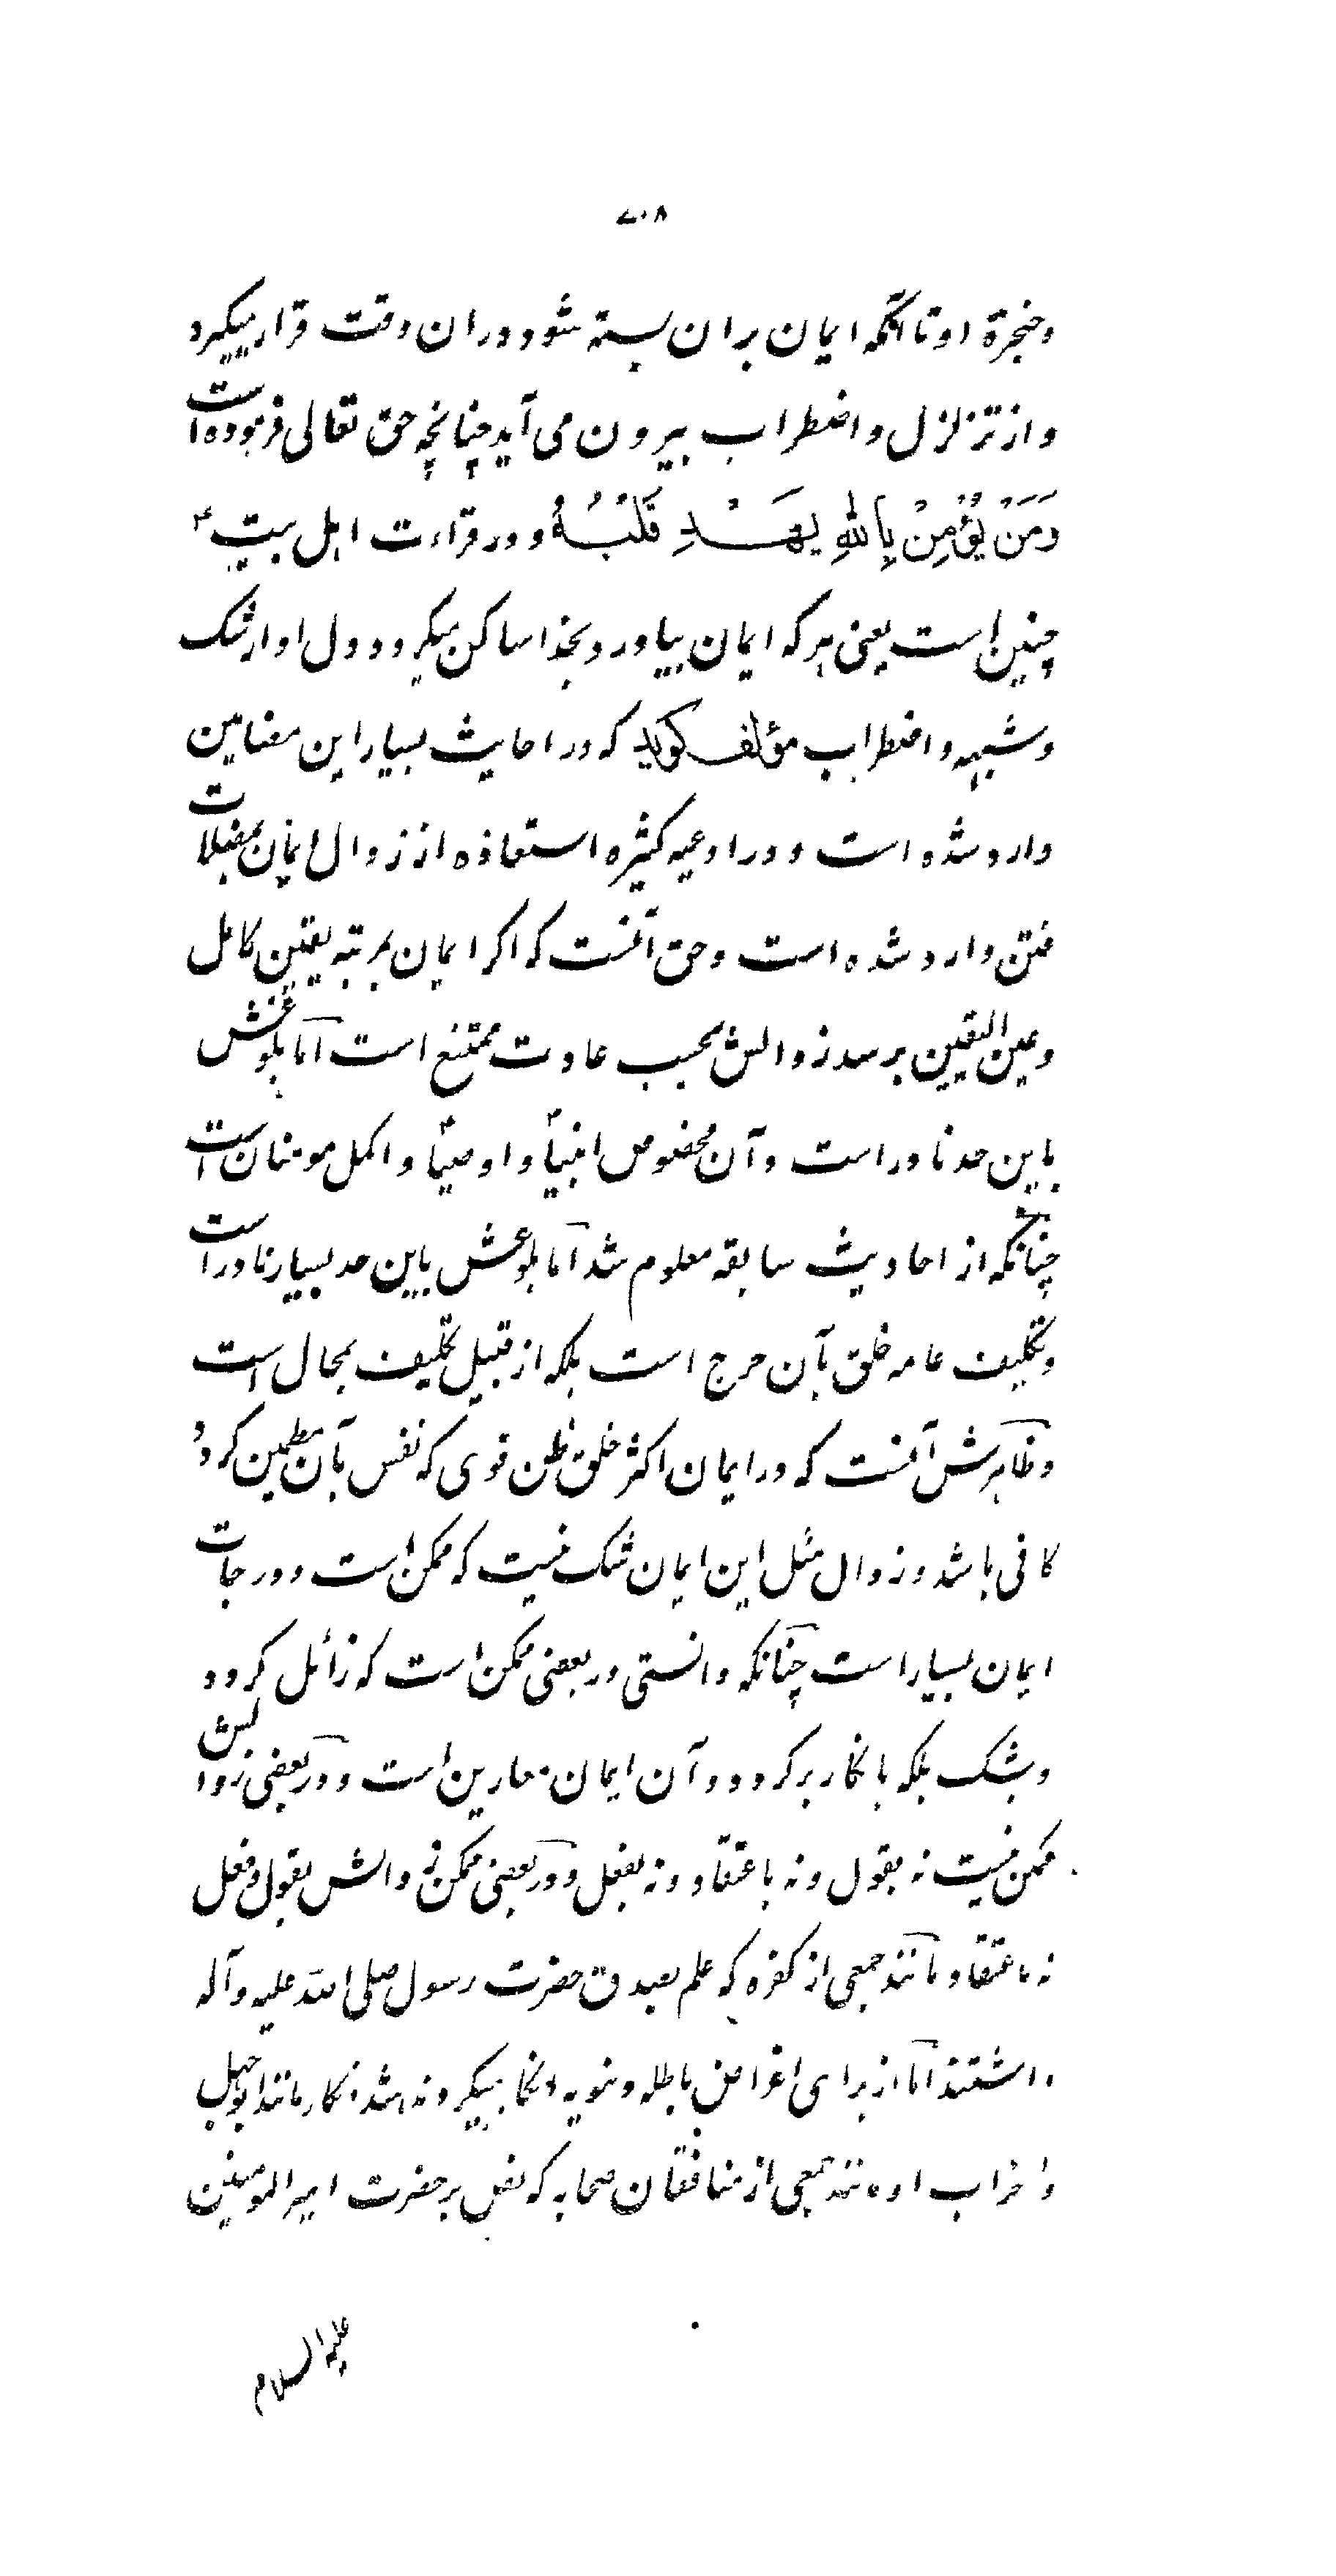 ۷۰۸
وحنجرۀ او تا آنکه ایمان بران بسته شود ودران وقت قرار میکیرد
و از تزلزل و اضطراب بیرون می آید چنانچه حق تعالی فرموده است
وَمَنْ يُؤْمِنْ بِاللهِ يَهْدِ قَلْبُهُ و در قراءت اهل بیت ع
چنین است یعنی هر که ایمان بیاورد بخدا ساکن میکردد دل او از شک
و شبهه و اضطراب مؤلف کوید که در احایث بسیار این مضامین
وارد شده است و در ادعیه کثیره استعاذه از زوال ایمان بمضلات
فتن وارد شده است و حق آنست که اکر ایمان بمرتبه یقین کامل
و عین الیقین برسد زوالش بحسب عادت ممتنع است اما بلوغش
باین حد نادر است و آن مخصوص انبیاء و اوصیاء و اکمل مومنان است
چنانکه از احادیث سابقه معلوم شد اما بلوغش باین حد بسیار نادر است
و تکلیف عامه خلق بآن حرج است بلکه از قبیل تکلیف بمحال است
و ظاهرش آنست که در ایمان اکثر خلق ظن قوی که نفس بآن مطمین کردد
کافی باشد و زوال مثل این ایمان شک نیست که ممکن است و درجات
ایمان بسیار است چنانکه دانستی در بعضی ممکن است که زائل کردد
و بشک بلکه بانکار برکردد و آن ایمان معارین است و در بعضی زوالش
ممکن نیست نه بقول و نه باعتقاد و نه بفعل و در بعضی ممکن زوالش بقول و فعل
نه باعتقاد مانند جمعی از کفره که علم بصدق حضرت رسول صلی الله علیه وآله
داشتند اما از برای اغراض باطله دنیویه انکار میکردند اشد انکار مانند ابوجهل
و احزاب او مانند جمعی از منافقان صحابه که نص بر حضرت امیر المومنین
علیه السلام